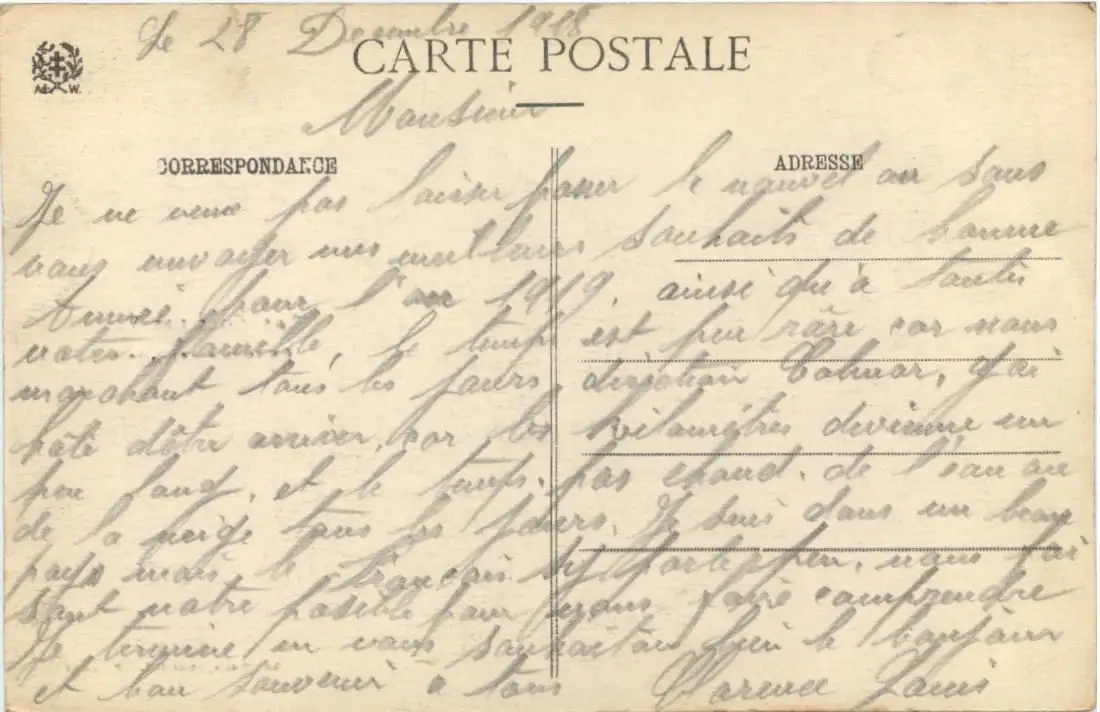 Le 28 Decembre 1918
CARTE POSTALE
Ad. W.
Monsieur
CORRESPONDANCE
ADRESSE
Je ne veux pas laisser passer le nouvel an sans
vous envoyer mes meilleurs souhaits de bonne
Année pour l'an 1919, ainsi qu'à toutes
votre famille, le temps est peu râre car nous
marchant tous les jours, diréction Colmar, j'ai
hâte d'être arriver, car les kilométres devienne un
peu long, et le temps pas chaud, de l'eau ou
de la neige tous les jours. Je suis dans un beau
pays mais le Français s'y parle peu, nous fai
sant notre posible pour nous faire comprendre
Je termine en vous souhaitan bien le bonjour
et bon souvenir à tous Clarence Louis